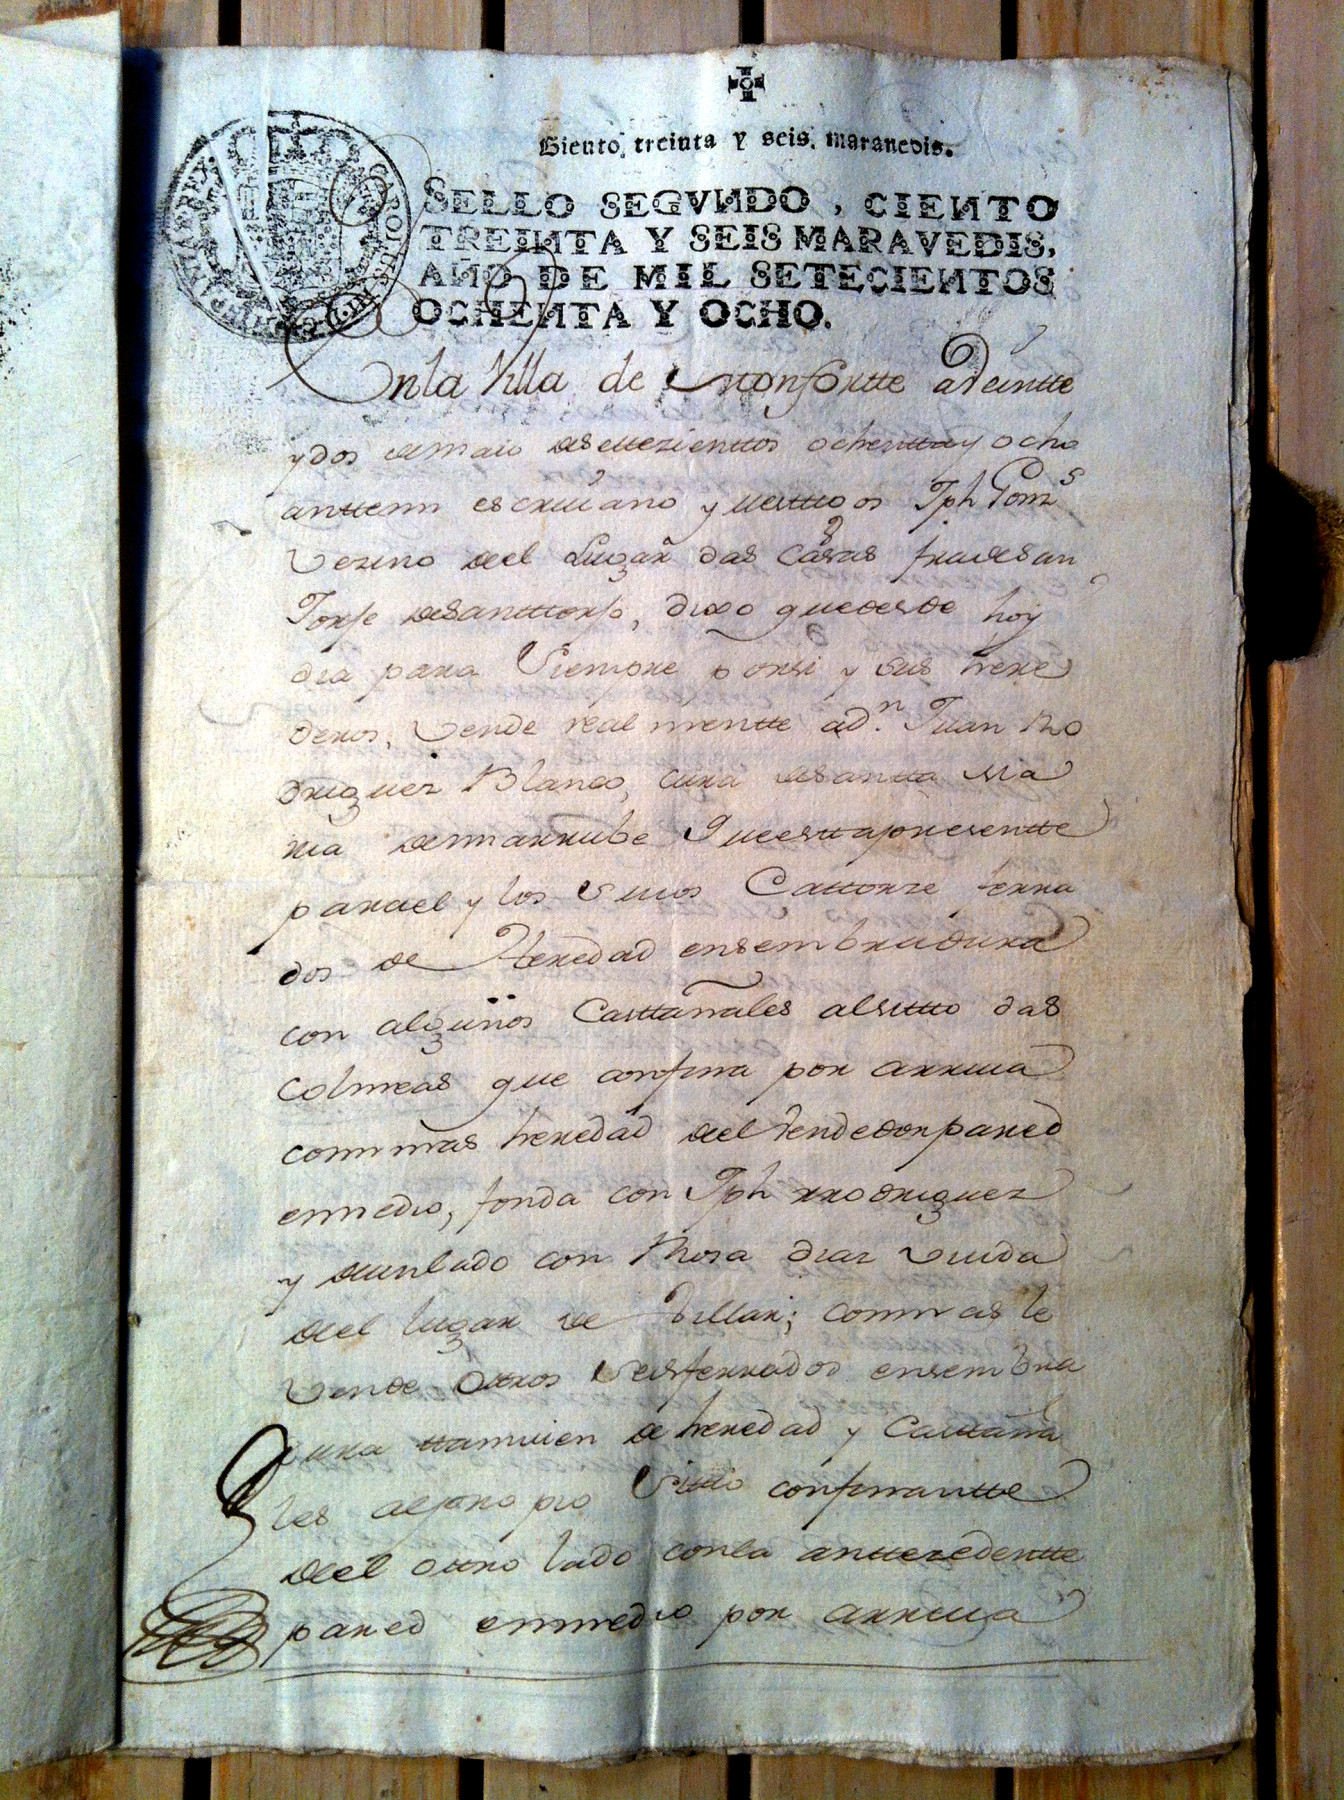 Ciento, treinta y seis, maravedis.
SELLO SEGVNDO, CIENTO
TREINTA Y SEIS MARAVEDIS,
AÑO DE MIL SETECIENTOS
OCHENTA Y OCHO.
CAROLUS III
HISPANIAR REX
Enla Villa de Monfortte aveintte
y dos demaio desettezienttos ochenttay ocho
anttemi escriuano y testtigos Jph Gomz
Vezino del Lugar das Casas frades an
Jorje desanttorjo, dixo quedesde hoy
dia para Siempre porsi y sus here
deros, Vende real mentte adn. Juan Ro
driguez Blanco, cura desantta Ma
ria demarrube questtapresentte
parael y los Suios Cattorze ferra
dos de Heredad ensembradura
con algunos Casttañales alsitto das
Colmeas que confina por arriua
conmas heredad del Vendedorpared
enmedio, fonda con Jph rrodriguez
y deunlado con Rosa diaz Viuda
del lugar de Villar; conmas le
Vende Ottros Seisferrados ensembra
dura ttamuien de heredad y Casttaña
les alpropio Sittio confinantte
del ottro lado conla anttezedentte
pared enmedio por arriua